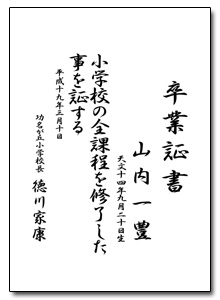 卒業証書
山内一豊
天文十四年九月二十日生
小学校の全課程を修了した
事を証する
平成十九年三月十日
功名が丘小学校長
徳川家康